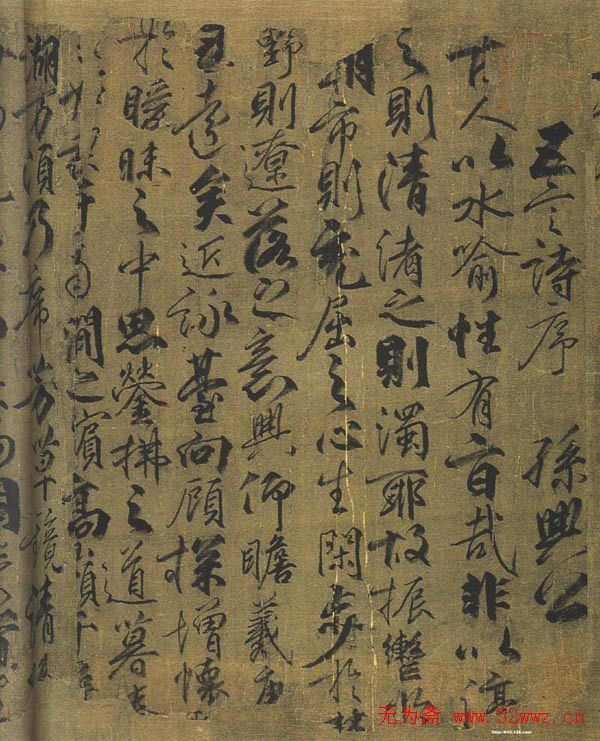 五言詩序 孫興公
古人以水喻性有旨哉非以渟
之則清渚之則濁耶故振轡於
朝市則充屈之心生閑步於林
野則遼落之意興仰瞻羲唐
遠矣近詠臺向顧探增懷
於曖昧之中思縈拂之道暮春
于南澗之賓高嶺千
湖万須乃席芳草鏡清
无为斋 www.52wwz.cn